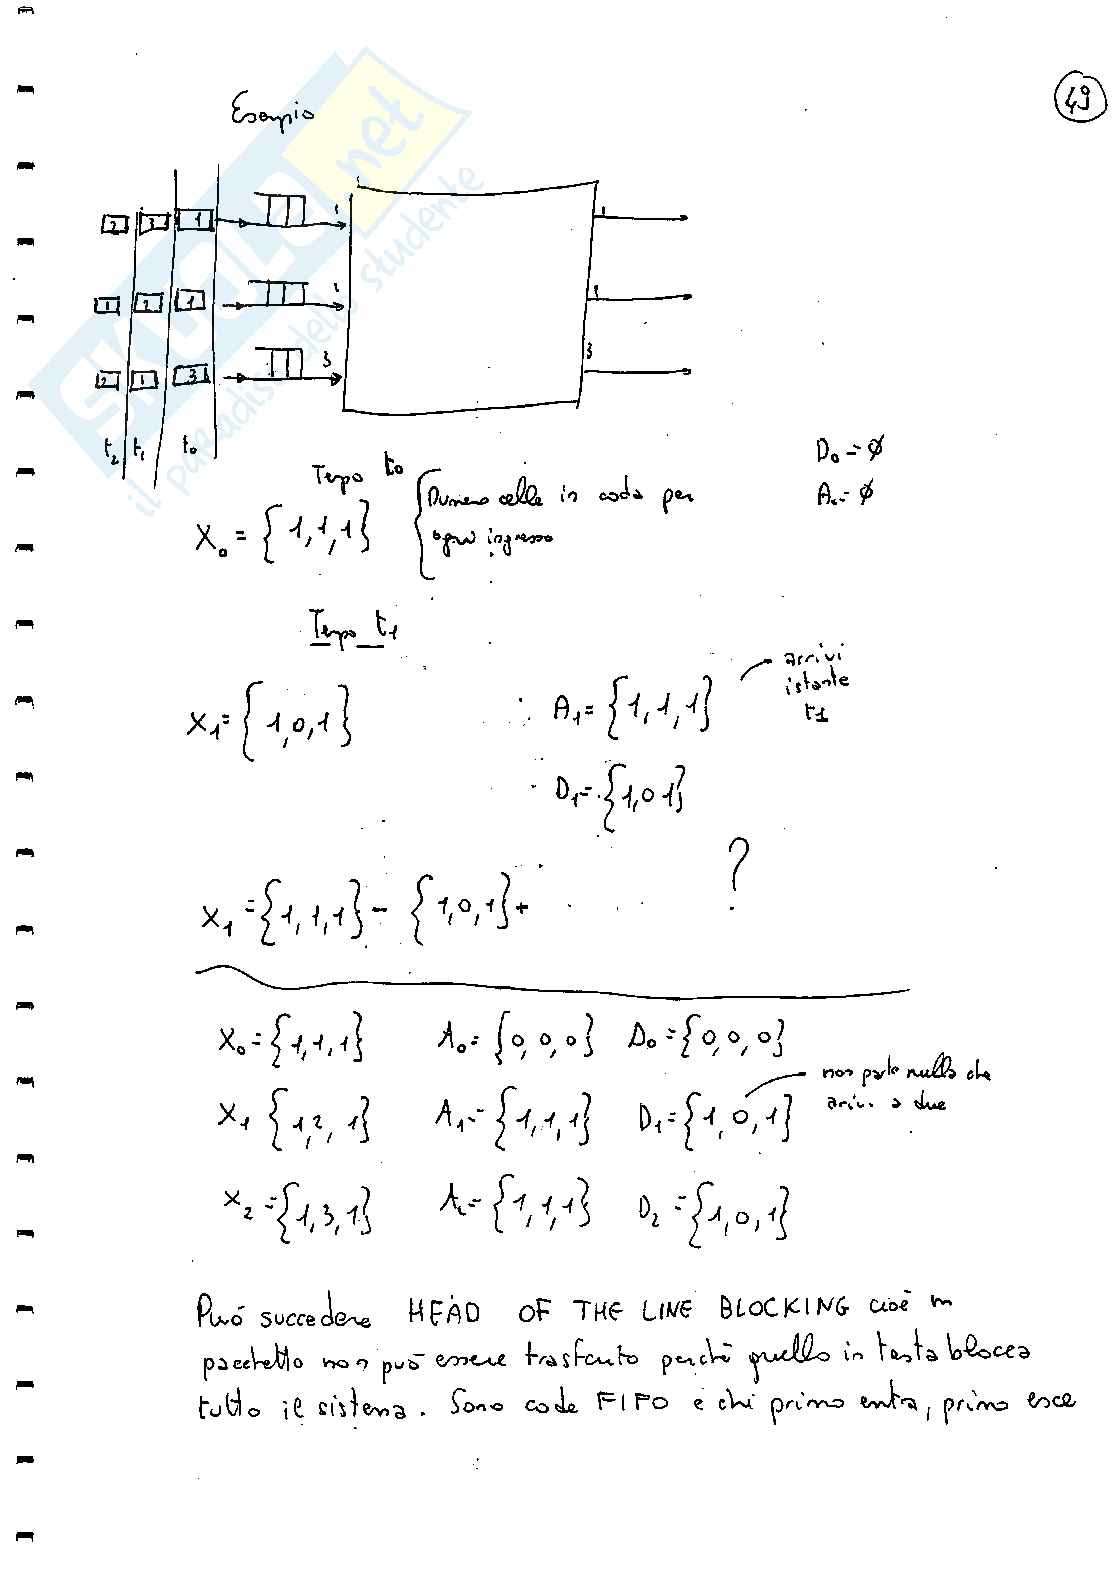 49
Esempio
2 3 1 1 1
1 2 1 1 1
2 1 3 3 3
t2 t1 t0
D0 = ∅
Tempo t0
X0 = {1,1,1} { Numero celle in coda per
ogni ingresso
Tempo t1
arrivi
istante
t1
X1 = {1,0,1} A1 = {1,1,1}
D1 = {1,0 1}
?
X1 = {1,1,1} - {1,0,1} +
X0 = {1,1,1} A0 = {0,0,0} D0 = {0,0,0}
non parte nulla che
X1 {1,2,1} A1 = {1,1,1} D1 = {1,0,1}
a due
X2 = {1,3,1} A2 = {1,1,1} D2 = {1,0,1}
Può succedere HEAD OF THE LINE BLOCKING cioè un
pacchetto non può essere trasferito perchè quello in testa blocca
tutto il sistema. Sono code FIFO e chi primo entra, primo esce
SKUOLA.net
il paradiso dello studente